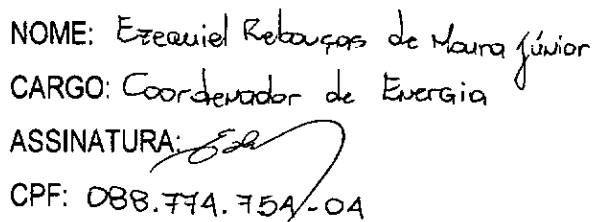 NOME: Ezequiel Rebouças de Moura júnior
CARGO: Coordenador de Energia
ASSINATURA:
CPF: 088.774.754-04